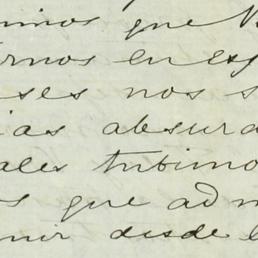 imos que
rnos en esp
ises nos s
ias absurd
ales tubimo
s que adm
nir desde l